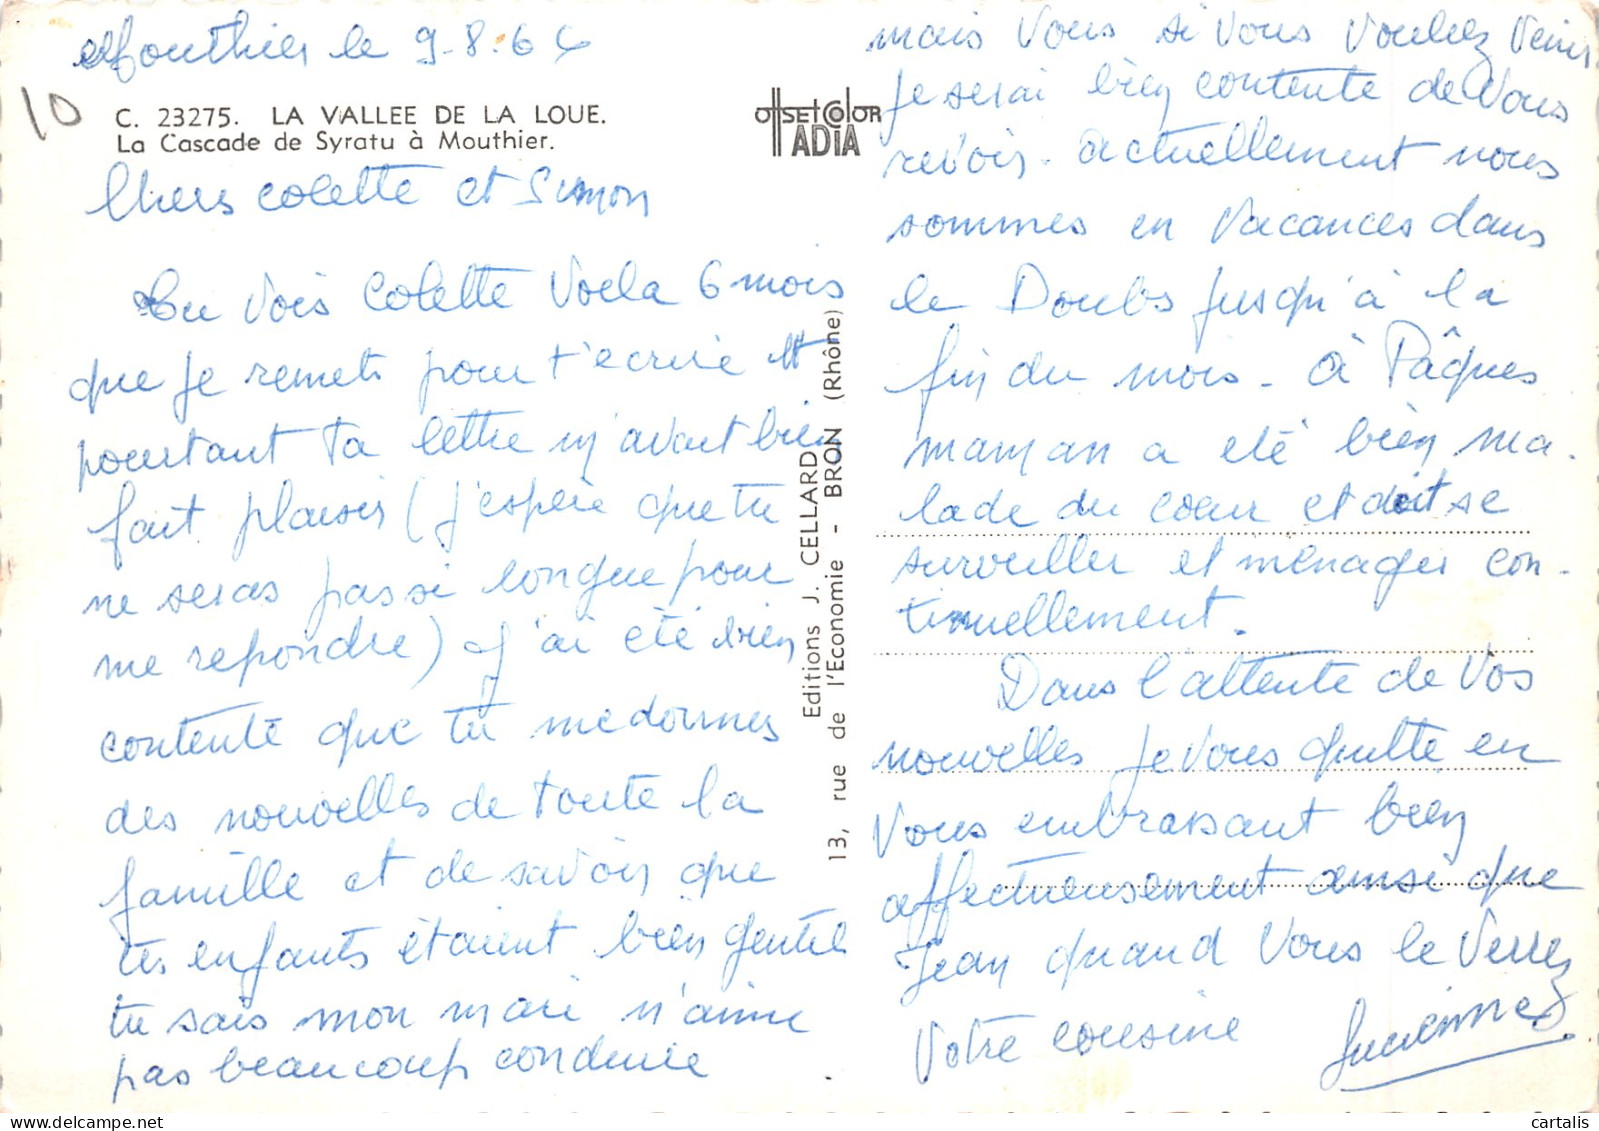 Mouthier le 9-8-64
10
C. 23275. LA VALLEE DE LA LOUE.
La Cascade de Syratu à Mouthier.
OffSET COlOR
ADIA
Chers colette et Simon
Tu Vois Colette Voila 6 mois
que je remets pour t'ecrire et
pourtant ta lettre m'avait bien
fait plaisir (j'espère que tu
ne seras pas si longue pour
me repondre) j'ai eté bien
contente que tu me donnes
des nouvelles de toute la
famille et de savoir que
tes enfants étaient bien gentils
tu sais mon mari n'aime
pas beaucoup conduire
Editions J. CELLARD
13, rue de l'Economie - BRON (Rhône)
mais Vous si Vous Vouliez Venir
je serai bien contente de Vous
revoir. actuellement nous
sommes en Vacances dans
le Doubs jusqu'à la
fin du mois - à Pâques
maman a eté bien ma-
lade du coeur et doit se
surveiller et ménager con-
tinuellement.
Dans l'attente de Vos
nouvelles je Vous quitte en
Vous embrassant bien
affectueusement ainsi que
Jean quand Vous le Verrez
Votre cousine Lucienne
cartalis